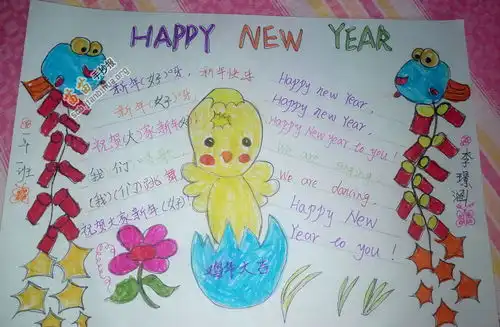 HAPPY NEW YEAR
新年(好)呀, 新年快乐
新年(好)呀,
祝贺(大)家新年好
我们唱歌
(我)(们)跳舞
祝贺大家新年(好)
Happy new Year,
Happy new Year,
Happy New Year to you!
We are singing
We are dancing
Happy New
Year to you!
二十班
鸡年大吉